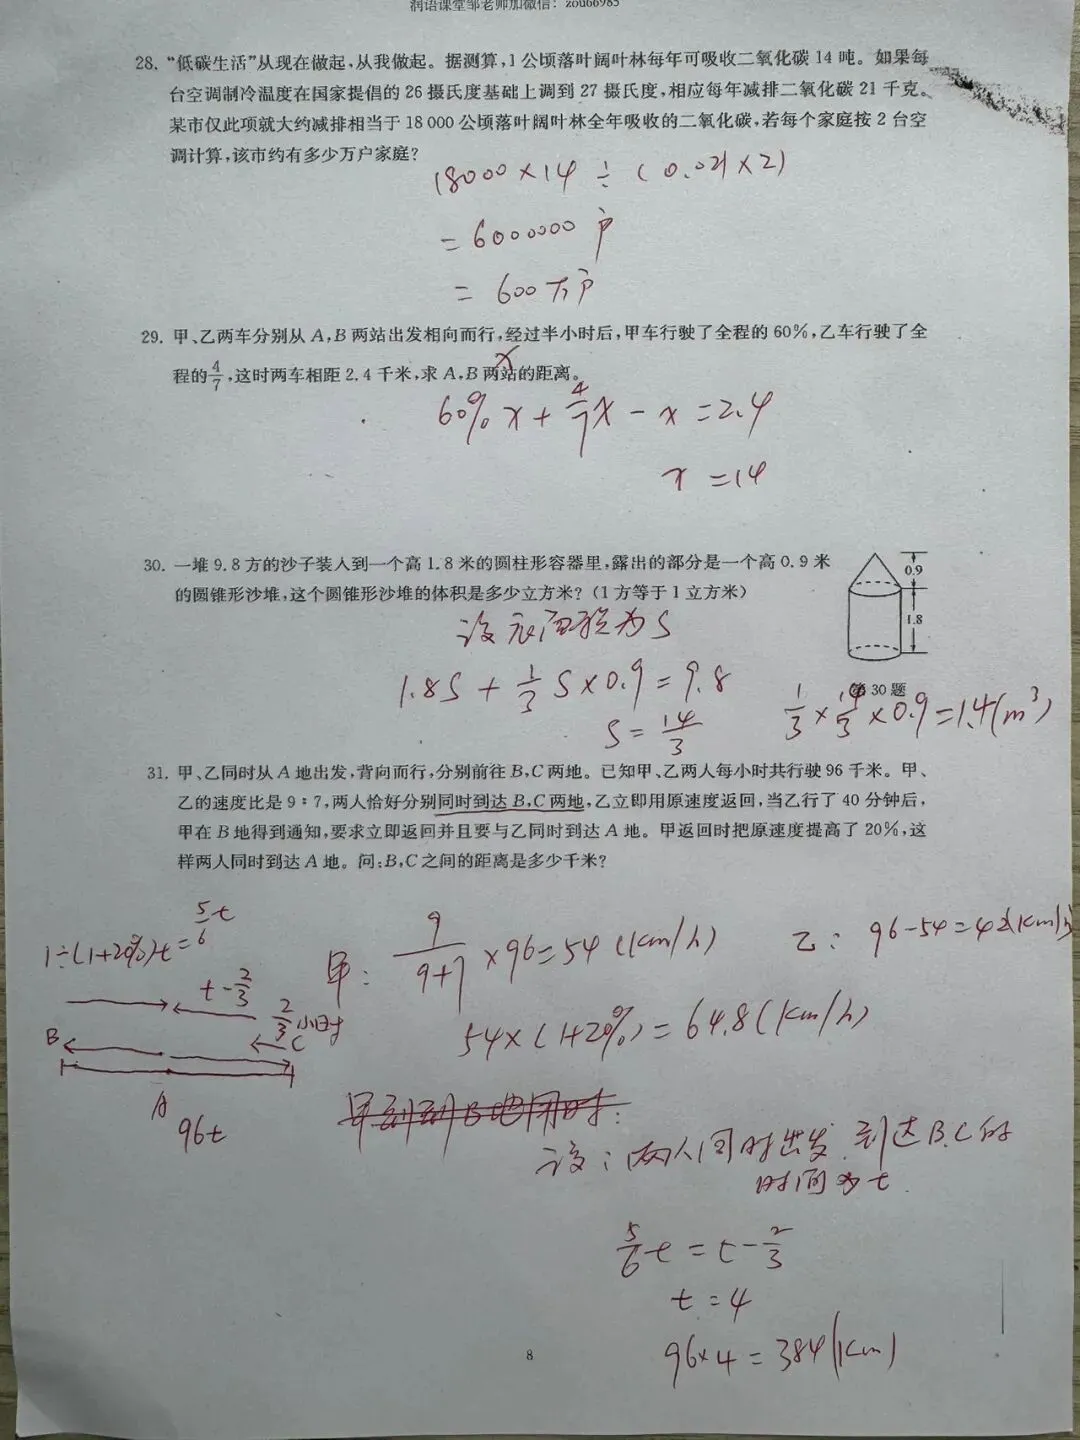 润语课堂邹老师加微信：zou66985
28. “低碳生活”从现在做起，从我做起。据测算，1 公顷落叶阔叶林每年可吸收二氧化碳 14 吨。如果每
台空调制冷温度在国家提倡的 26 摄氏度基础上调到 27 摄氏度，相应每年减排二氧化碳 21 千克。
某市仅此项就大约减排相当于 18 000 公顷落叶阔叶林全年吸收的二氧化碳，若每个家庭按 2 台空
调计算，该市约有多少万户家庭？
18000×14 ÷ (0.021×2)
= 6000000 户
= 600万户
29. 甲、乙两车分别从 A，B 两站出发相向而行，经过半小时后，甲车行驶了全程的 60%，乙车行驶了全
程的4/7，这时两车相距 2.4 千米，求 A，B 两站的距离。
x
60%x + 4/7x - x = 2.4
x = 14
30. 一堆 9.8 方的沙子装入到一个高 1.8 米的圆柱形容器里，露出的部分是一个高 0.9 米
的圆锥形沙堆，这个圆锥形沙堆的体积是多少立方米？（1 方等于 1 立方米）
0.9
1.8
第 30 题
设底面积为S
1.8S + 1/3 S×0.9 = 9.8
S = 14/3
1/3 × 14/3 × 0.9 = 1.4(m³)
31. 甲、乙同时从 A 地出发，背向而行，分别前往 B，C 两地。已知甲、乙两人每小时共行驶 96 千米。甲、
乙的速度比是 9：7，两人恰好分别同时到达 B，C 两地，乙立即用原速度返回，当乙行了 40 分钟后，
甲在 B 地得到通知，要求立即返回并且要与乙同时到达 A 地。甲返回时把原速度提高了 20%，这
样两人同时到达 A 地。问：B，C 之间的距离是多少千米？
1÷(1+20%)t = 5/6t
t - 2/3
2/3小时
B
C
A
96t
甲: 9/(9+7) ×96=54 (km/h)
乙: 96-54=42(km/h)
54×(1+20%)=64.8(km/h)
设：两人同时出发 到达B.C的
时间为t
5/6t = t - 2/3
t = 4
96×4 = 384(km)
8